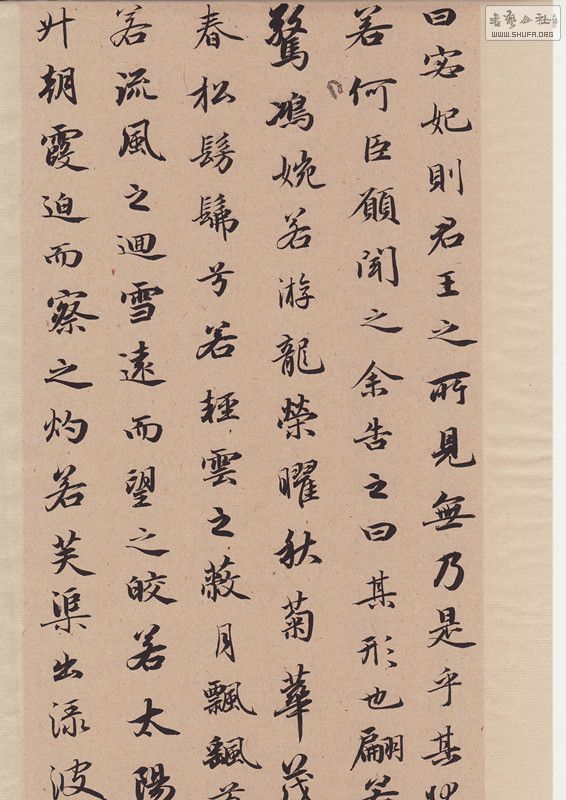 曰宓妃則君王之所見無乃是乎其
若何臣願聞之余告之曰其形也翩若
驚鴻婉若游龍榮曜秋菊華茂
春松髣髴兮若輕雲之蔽月飄颻兮
若流風之迴雪遠而望之皎若太陽
升朝霞迫而察之灼若芙渠出淥波
書藝公社
WWW.SHUFA.ORG